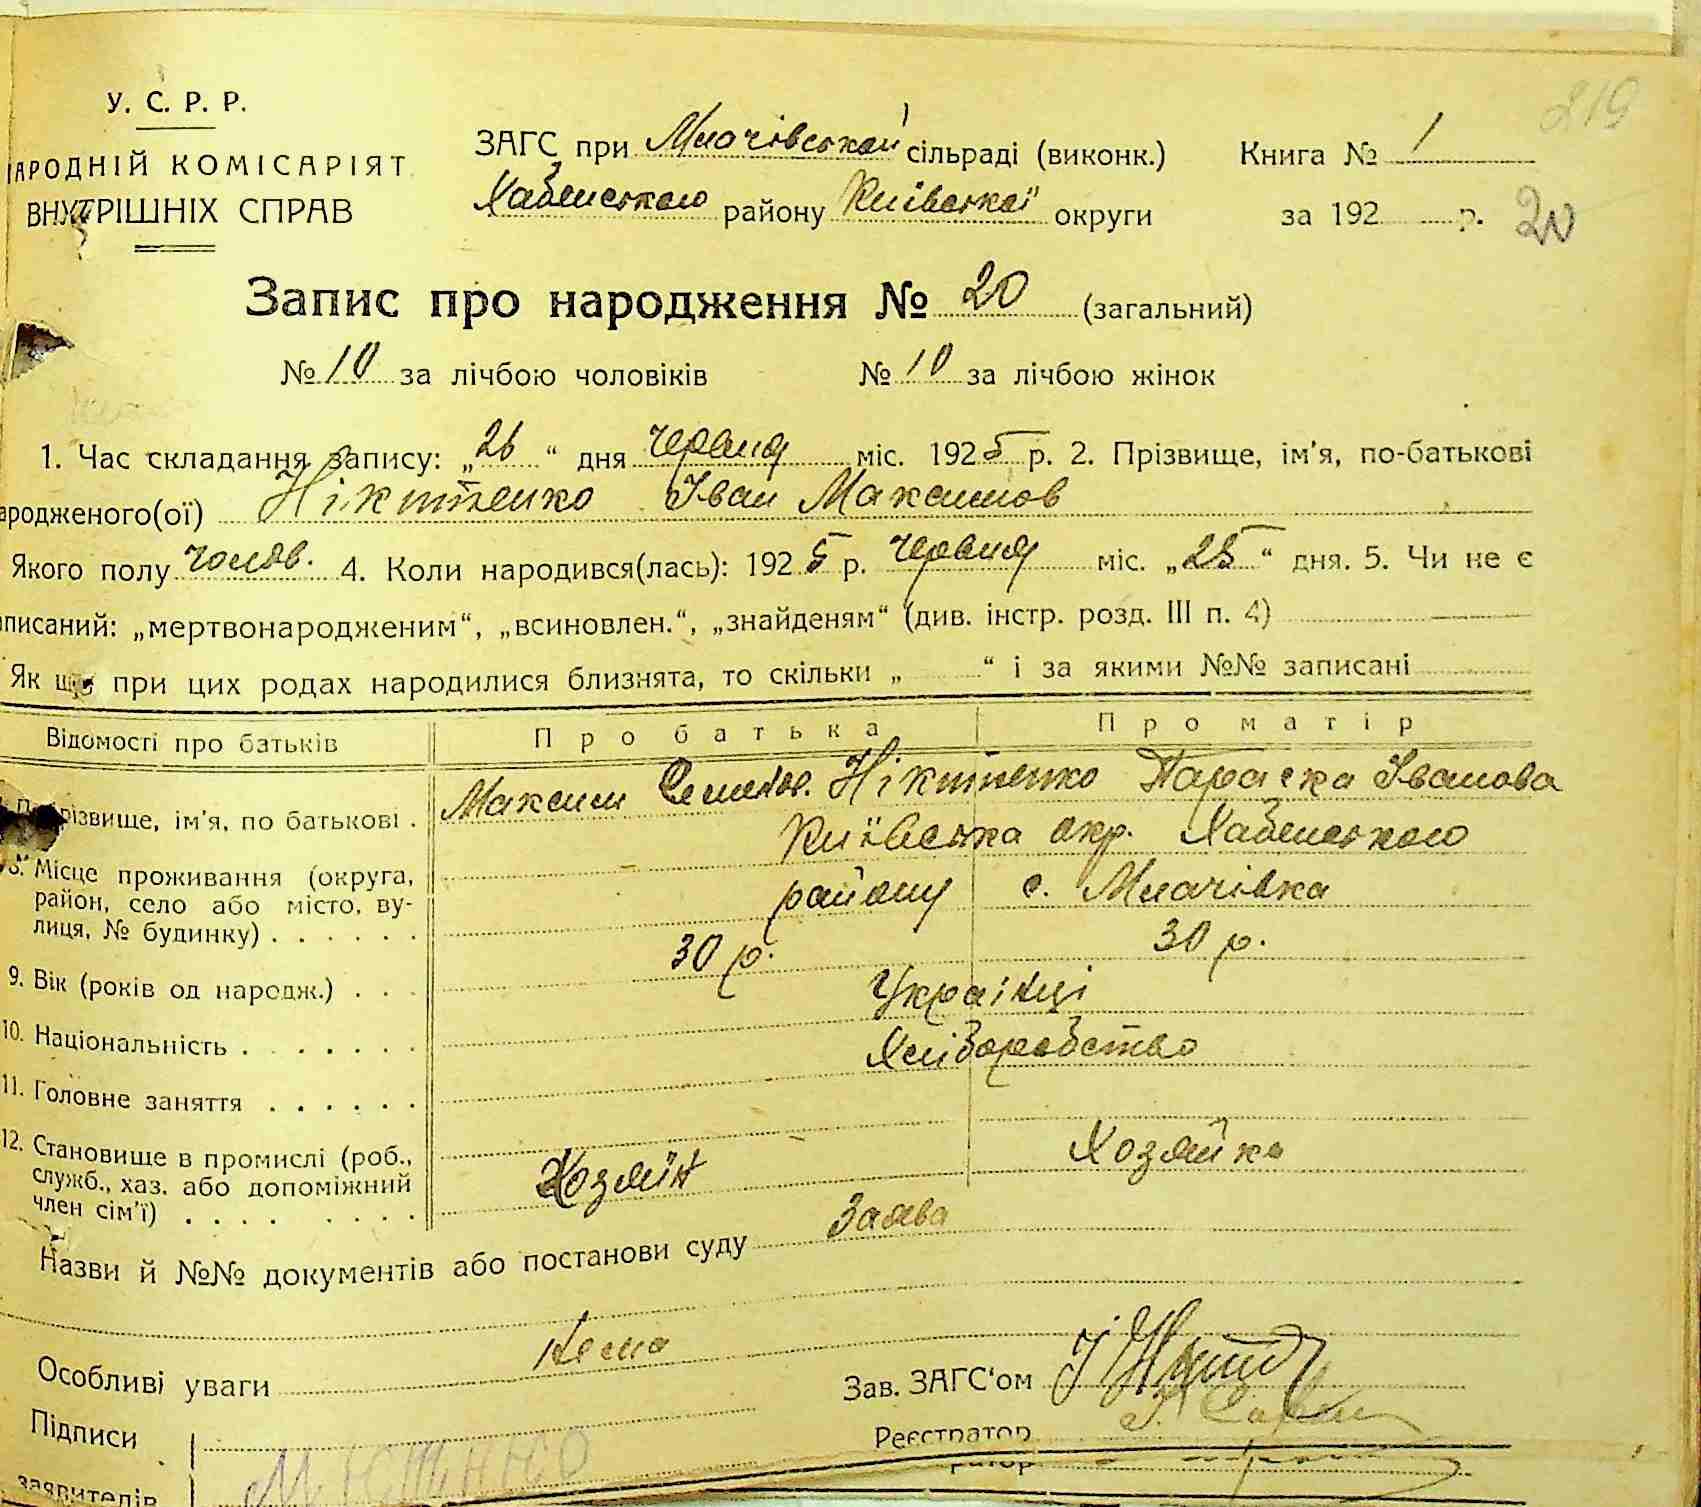 219
У. С. Р. Р.
НАРОДНІЙ КОМІСАРІЯТ
ВНУТРІШНІХ СПРАВ
ЗАГС при Млачівській сільраді (виконк.) Книга № 1
Хабенського району Київської округи за 192 р. 20
Запис про народження № 20 (загальний)
№ 10 за лічбою чоловіків № 10 за лічбою жінок
1. Час складання запису: „26“ дня червня міс. 1925 р. 2. Прізвище, ім'я, по-батькові
народженого(ої) Нікітенко Іван Максимов
Якого полу чолов. 4. Коли народився(лась): 1925 р. червня міс. „25“ дня. 5. Чи не є
записаний: „мертвонародженим“, „всиновлен.“, „знайденям“ (див. інстр. розд. III п. 4)
Як що при цих родах народилися близнята, то скільки „ “ і за якими №№ записані
Відомості про батьків Про батька Про матір
Прізвище, ім'я, по батькові . Максим Семенов. Нікітенко Параска Іванова
8. Місце проживання (округа, район, село або місто, вулиця, № будинку) . . . . . .
Київська окр. Хабенського
району с. Млачівка
9. Вік (років од народж.) . . . 30 р. 30 р.
10. Національність . . . . . . . Українці
11. Головне заняття . . . . . . Хліборобство
12. Становище в промислі (роб., служб., хаз. або допоміжний член сім'ї) . . . . . . . . Хозяїн Хозяйка
Назви й №№ документів або постанови суду Заява
Особливі уваги Нема
Зав. ЗАГС'ом
Підписи
Реєстратор
заявителів